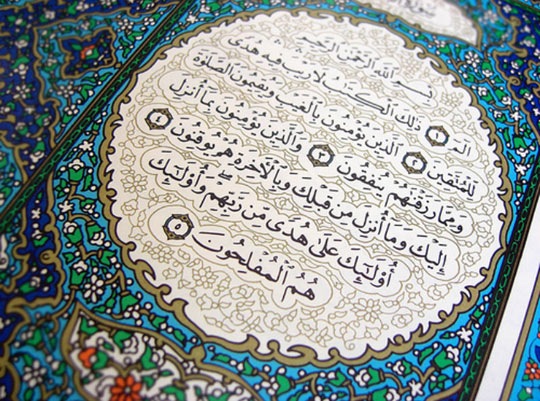 بِسْمِ ٱللَّهِ ٱلرَّحْمَٰنِ ٱلرَّحِيمِ
الٓمٓ ١ ذَٰلِكَ ٱلْكِتَٰبُ لَا رَيْبَ فِيهِ هُدًى
لِلْمُتَّقِينَ ٢ ٱلَّذِينَ يُؤْمِنُونَ بِٱلْغَيْبِ وَيُقِيمُونَ ٱلصَّلَوٰةَ
وَمِمَّا رَزَقْنَٰهُمْ يُنفِقُونَ ٣ وَٱلَّذِينَ يُؤْمِنُونَ بِمَآ أُنزِلَ
إِلَيْكَ وَمَآ أُنزِلَ مِن قَبْلِكَ وَبِٱلْآخِرَةِ هُمْ يُوقِنُونَ ٤
أُو۟لَٰٓئِكَ عَلَىٰ هُدًى مِّن رَّبِّهِمْ وَأُو۟لَٰٓئِكَ
هُمُ ٱلْمُفْلِحُونَ ٥